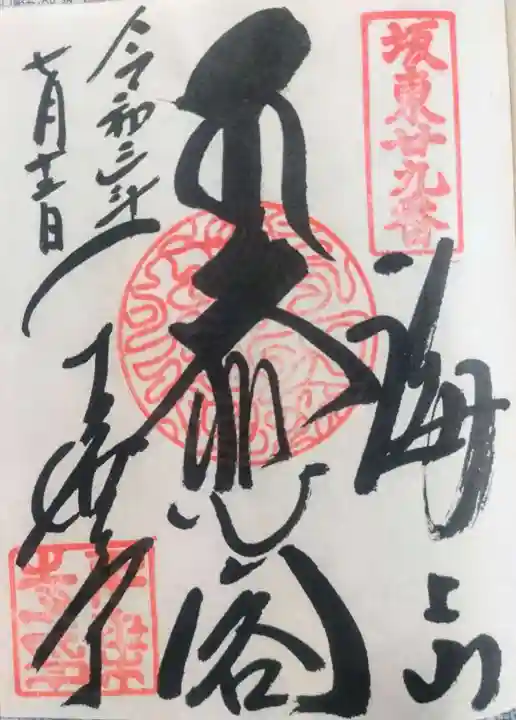 坂東廿九番
海上山
大悲閣
令和三年
七月十五日
千葉寺